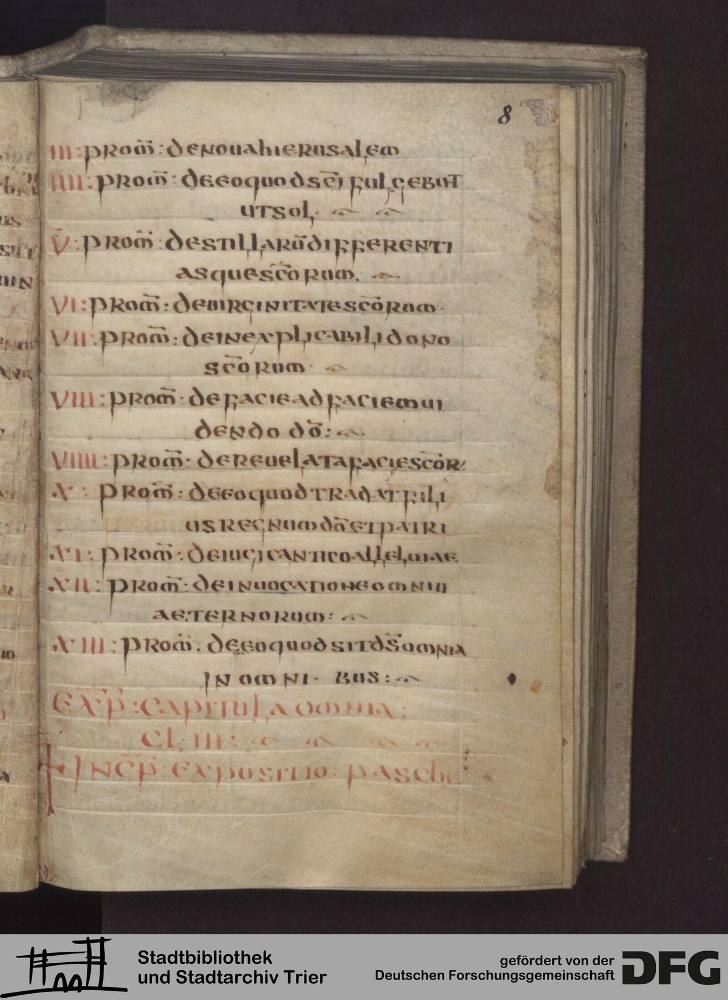 8
III: prom̄: denouahierusalem
IIII: prom̄: deeoquodscī fulgebunt
utsol·
V̄: prom̄: destillarūdifferenti
asquesc̄orum.
VI: prom̄: deuirginitatesc̄orum·
VII: prom̄: deinexplicabilidono
sc̄orum·
VIII: prom̄· defacieadfaciemui
dendo dō:
VIIII: prom̄· dereuelatafaciesc̄or·
X· prom̄: deeoquodtradat fili
usregnumdōetpatri
XI: prom̄: deiugicanticoalleluiae
XII: prom̄· deinuocationeomniū
aeternorum:
XIII: prom̄: deeoquodsitds̄omnia
inomni· bus:
exp̄: capitula omnia:
CLIII:
Incp̄: expositio: pasche
Stadtbibliothek
und Stadtarchiv Trier
gefördert von der
Deutschen Forschungsgemeinschaft
DFG